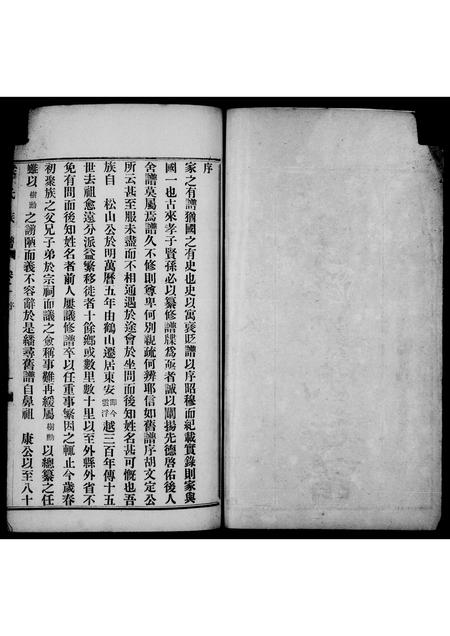 序
家之有譜猶國之有史也史以寓褒貶譜以序昭穆而紀載實錄則家與
國一也古來孝子賢孫必以纂修譜牒為亟者誠以闡揚先德啓佑後人
舍譜莫屬焉譜久不修則尊卑何別親疏何辨耶信如舊譜序胡文定公
所云甚至服未盡而不相通遇於途會於坐問而後知姓名甚可慨也吾
族自 松山公於明萬曆五年由鶴山遷居東安即今雲浮越三百年傳十五
世去祖愈遠分派益繁移徙者十餘鄉或數里數十里以至外縣外省不
免有問而後知姓名者前人屢議修譜卒以任重事繁因之輒止今歲春
初聚族之父兄子弟於宗祠而議之僉稱事難再緩屬樹勳以總纂之任
雖以樹勳之謭陋而義不容辭於是繙尋舊譜自鼻祖 康公以至八十
氏族譜 卷 序 一